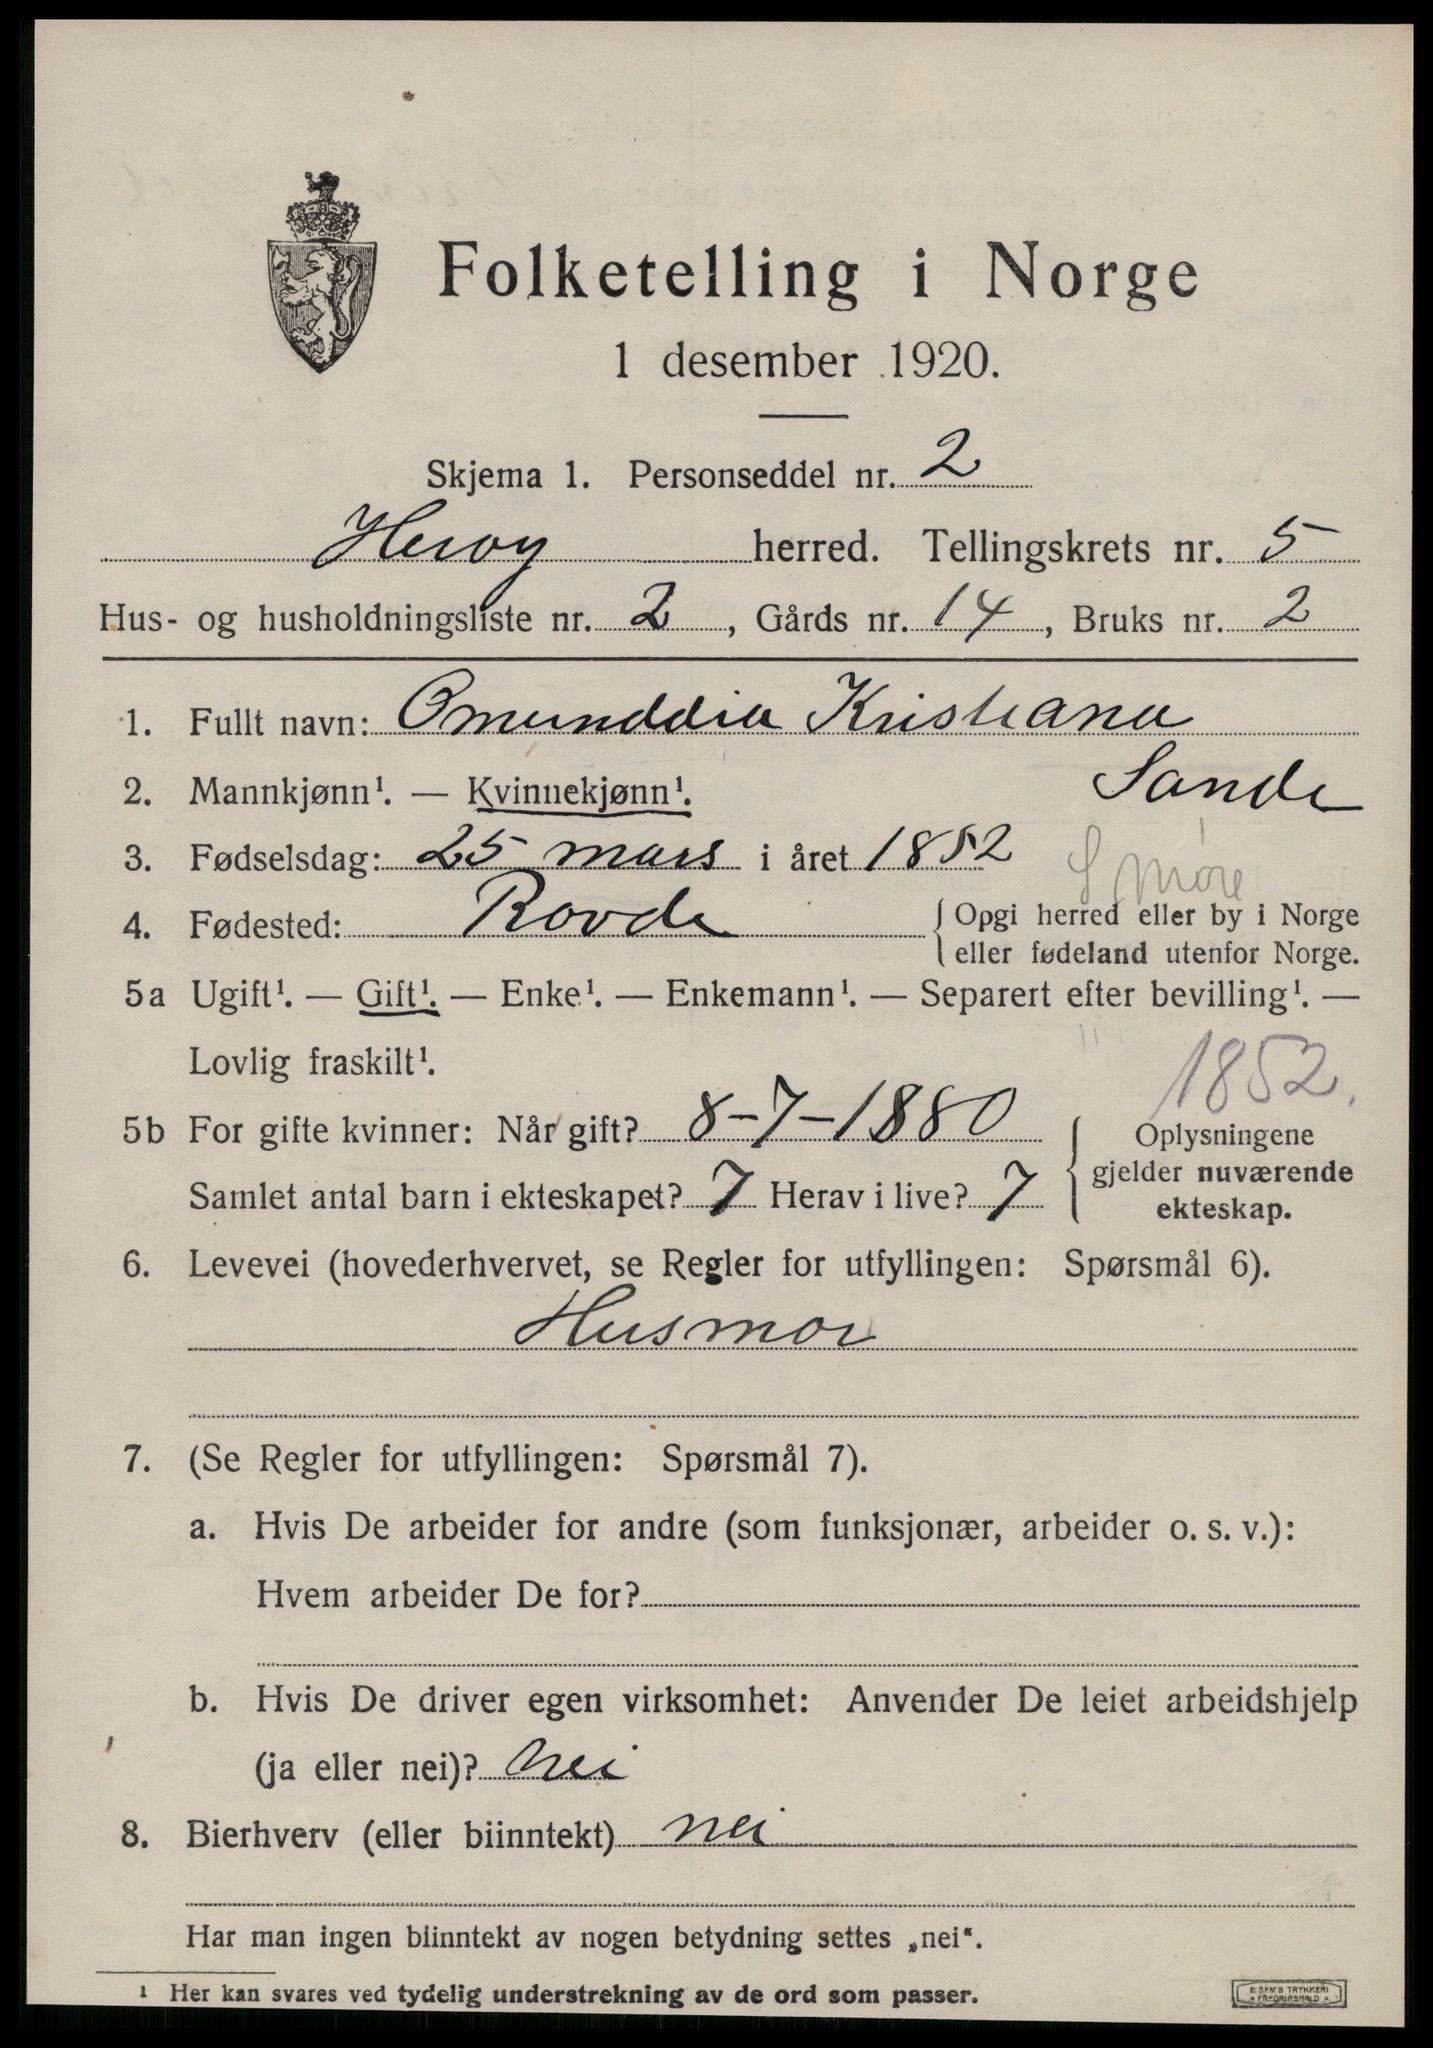 Folketelling i Norge
1 desember 1920.
Skjema 1. Personseddel nr. 2
Herøy herred. Tellingskrets nr. 5
Hus- og husholdningsliste nr. 2, Gårds nr. 14, Bruks nr. 2
1. Fullt navn: Omunddia Kristiana
Sande
2. Mannkjønn¹. — Kvinnekjønn¹.
3. Fødselsdag: 25 mars i året 1852
S Møre
4. Fødested: Rovde { Opgi herred eller by i Norge
eller fødeland utenfor Norge.
5a Ugift¹. — Gift¹. — Enke¹. — Enkemann¹. — Separert efter bevilling¹. —
Lovlig fraskilt¹.
1852.
5b For gifte kvinner: Når gift? 8-7-1880 { Oplysningene
gjelder nuværende
ekteskap.
Samlet antal barn i ekteskapet? 7 Herav i live? 7
6. Levevei (hovederhvervet, se Regler for utfyllingen: Spørsmål 6).
Husmor
7. (Se Regler for utfyllingen: Spørsmål 7).
a. Hvis De arbeider for andre (som funksjonær, arbeider o. s. v.):
Hvem arbeider De for?
b. Hvis De driver egen virksomhet: Anvender De leiet arbeidshjelp
(ja eller nei)? nei
8. Bierhverv (eller biinntekt) nei
Har man ingen biinntekt av nogen betydning settes „nei“.
¹ Her kan svares ved tydelig understrekning av de ord som passer.
E. SEM'S TRYKKERI
FREDRIKSHALD